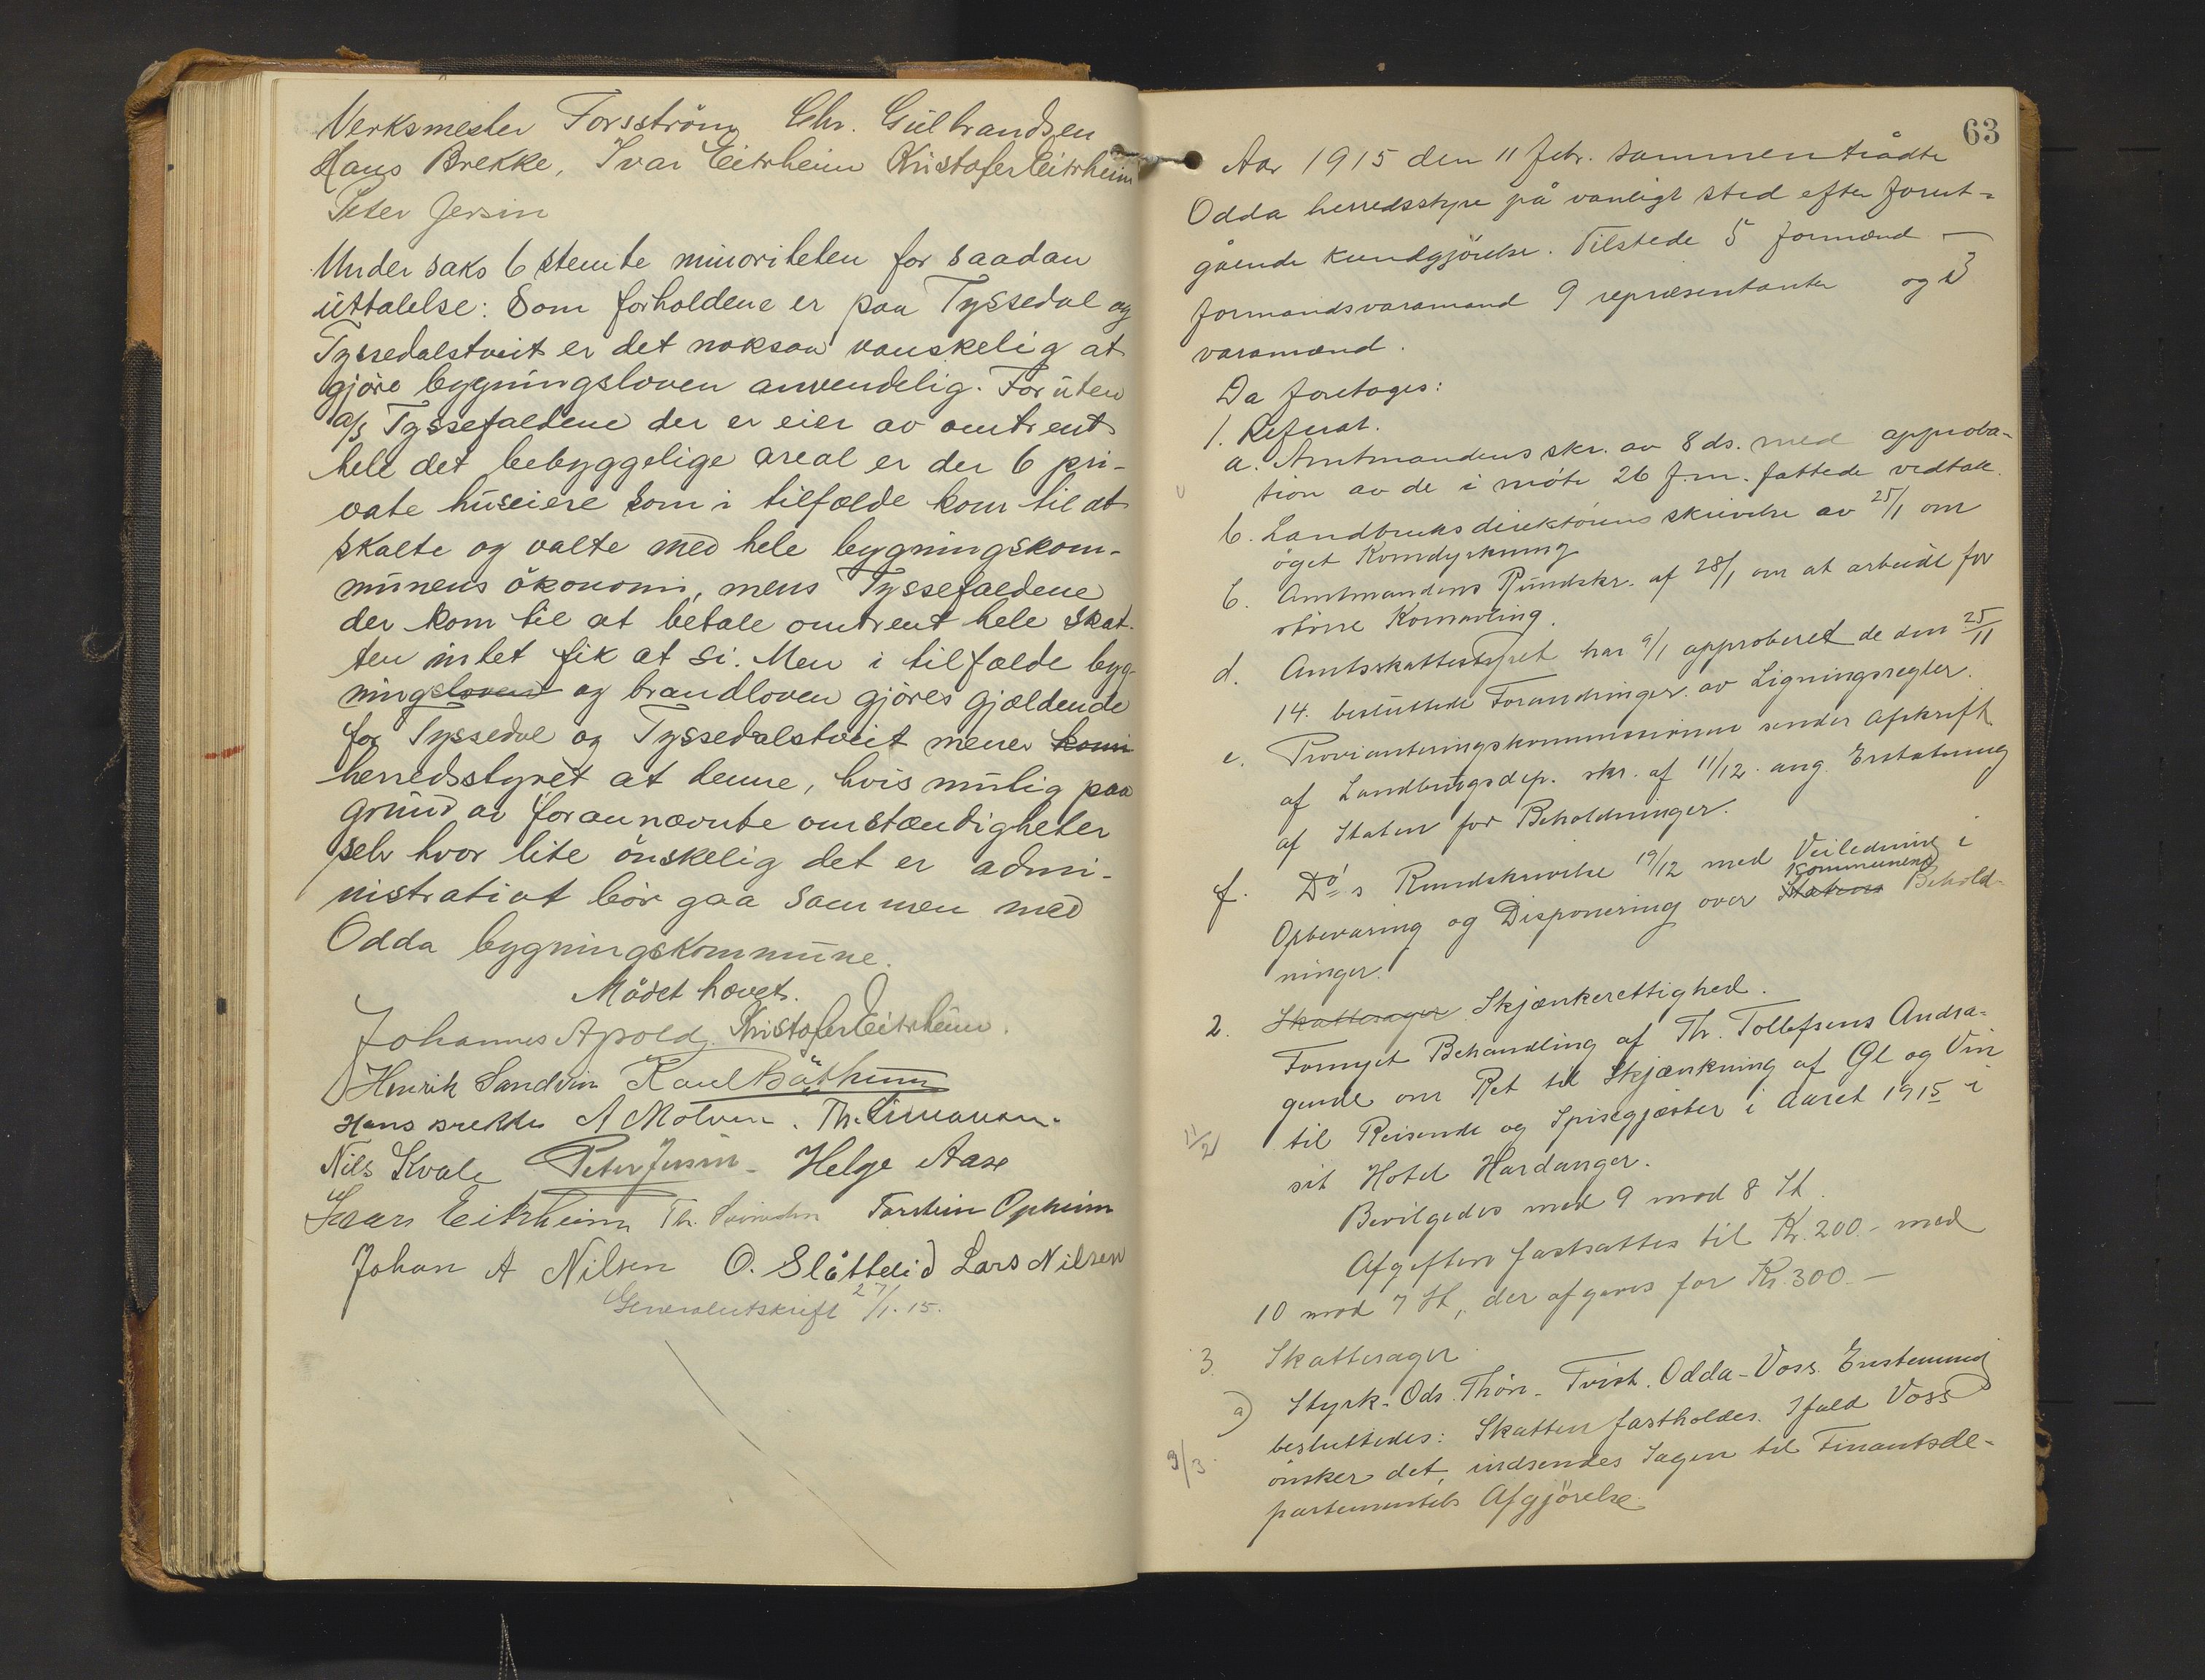 Verksmester Forsström Chr. Gulbrandsen
Hans Brekke, Ivar Eitrheim Kristofer Eitrheim
Peter Jersin
Under saks 6 stemte minoriteten for saadan
uttalelse: Som forholdene er paa Tyssedal og
Tyssedalstveit er det noksaa vanskelig at
gjöre bygningsloven anvendelig. For uten
a/s Tyssefaldene der er eier av omtrent
hele det bebyggelige areal er der 6 pri-
vate huseiere som i tilfælde kom til at
skalte og valte med hele bygningskom-
munens ökonomi, mens Tyssefaldene
der kom til at betale omtrent hele skat-
ten intet fik at si. Men i tilfælde byg-
ningsloven og brandloven gjöres gjældende
for Tyssedal og Tyssedalstveit mener kom
herredsstyret at denne, hvis mulig paa
grund av forannævnte omstændigheter
selv hvor lite önskelig det er admi-
nistrativt bör gaa sammen med
Odda bygningskommune.
Mödet hævet.
Johannes Apold. Kristofer Eitrheim.
Henrik Sandvin Karl Bäthum
Hans Brekke A Molven. Th.
Nils Kvale Peter Jersin - Helge Aase
Ivar Eitrheim Th. Torstein Opheim
Johan A Nilsen O. Slåttelid Lars Nilsen
Generalutskrift 27/1. 15.
63
Aar 1915 den 11 febr. sammentrådte
Odda herredsstyre på vanligt sted efter forut-
gående kundgjörelse. Tilstede 5 formænd -
formandsvaramand 9 repræsentanter og 3
varamænd.
Da foretoges:
1. Referat.
a. Amtmandens skr. av 8 ds. med approba-
tion av de i möte 26 f.m. fattede vedtak.
b. Landbruksdirektörens skrivelse av 25/1 om
öget Korndyrkning
c. Amtmandens Rundskr. af 28/1 om at arbeide for
större Kornavling.
d. Amtsskattestyret har 9/1 approberet de den 25/11
14. besluttede Forandringer av Ligningsregler.
e. Provianteringskommissionen sender Afskrift
af Landbrugsdep. skr. af 11/12. ang. Erstatning
af Staten for Beholdninger.
f. Do's Rundskrivelse 19/12 med Veiledning i
Opbevaring og Disponering over Statens Kommunens Behold-
ninger.
2. Skattesager Skjænkerettighed.
Fornyet Behandling af Th. Tollefsens Andra-
gende om Ret til Skjænkning af Øl og Vin
til Reisende og Spisegjæster i Aaret 1915 i
11/2
sit Hotel Hardanger.
Bevilgedes med 9 mod 8 St.
Afgiften fastsattes til Kr. 200.- med
10 mod 7 St., der afgaves for Kr. 300.-
3. Skattesager
a) Styrk. Ods. Thön - Tvist. Odda-Voss. Enstemmig
besluttedes: Skatten fastholdes. Ifald Voss
9/3
önsker det, indsendes Sagen til Finantsde-
partementets Afgjörelse.